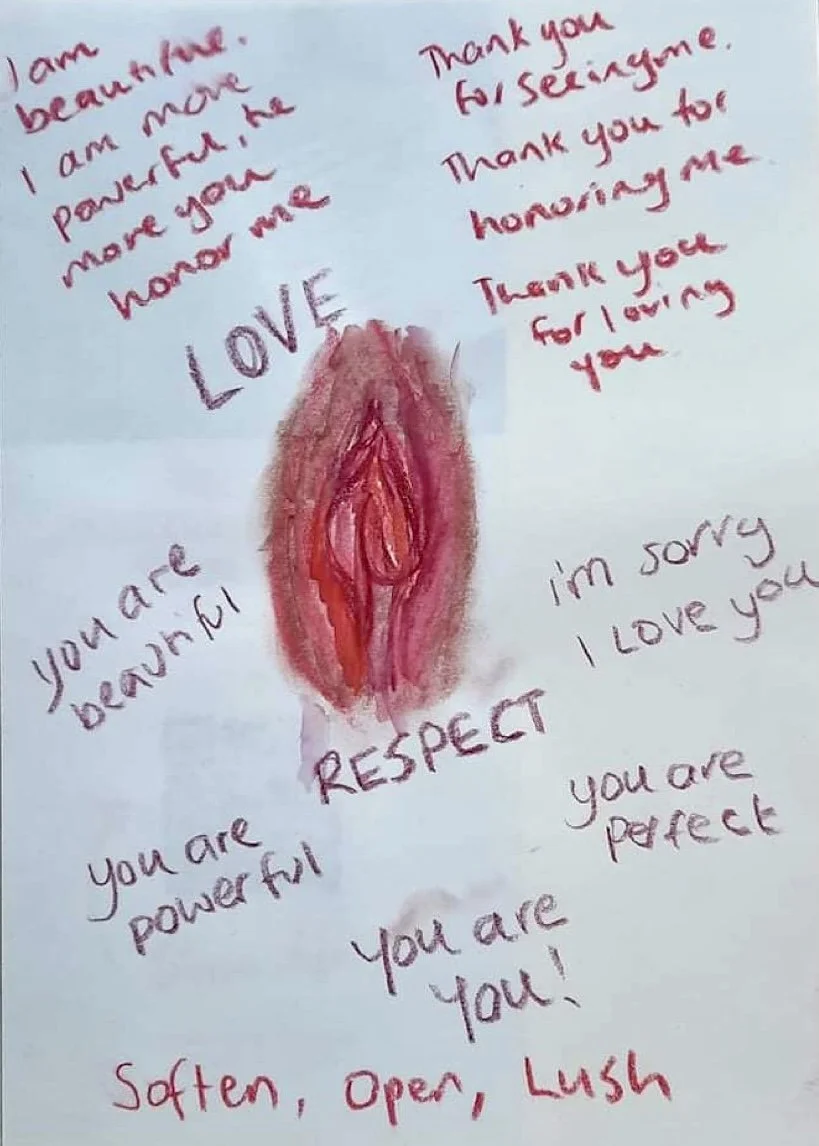 I am
beautiful.
I am more
powerful, he
more you
honor me
Thank you
for seeing me.
Thank you for
honoring me
Thank you
for loving
you
LOVE
you are
beautiful
i'm sorry
I LOVE you
RESPECT
you are
perfect
you are
powerful
you are
you!
Soften, Open, Lush